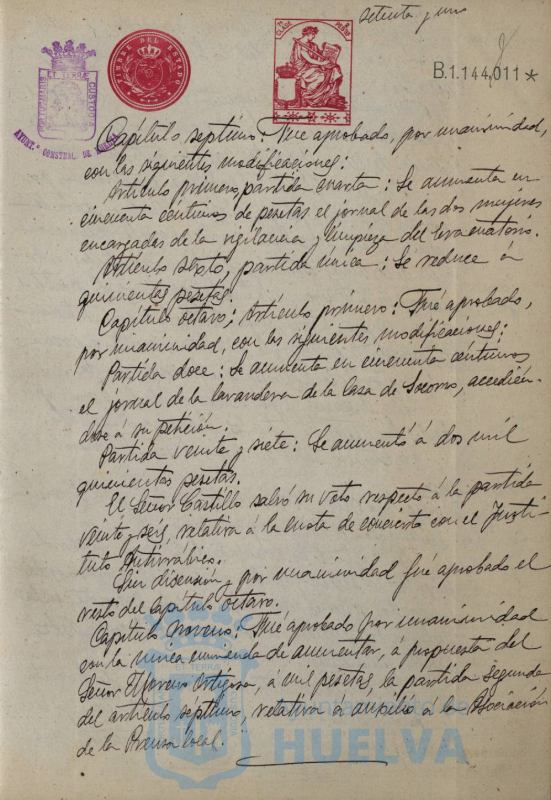 setenta y uno
TIMBRE DEL ESTADO
CLASE
B.1.144,011*
PORTUS MARIS ET TERRÆ CUSTODIA
AYUNTº CONSTNAL. DE HUELVA
Capítulo septimo: Fué aprobado, por unanimidad,
con las siguientes modificaciones:
Artículo primero, partida cuarta: Se aumenta en
cincuenta céntimos de pesetas el jornal de las dos mujeres
encargadas de la vigilancia y limpieza del Evacuatorio.
Artículo sexto, partida única: Se reduce á
quinientas pesetas.
Capítulo octavo; Artículo primero: Fué aprobado,
por unanimidad, con las siguientes modificaciones:
Partida doce: Se aumenta en cincuenta céntimos
el jornal de la lavandera de la Casa de Socorro, accedién-
dose á su petición.
Partida veinte y siete: Se aumentó á dos mil
quinientas pesetas.
El Señor Castillo salvó su voto respecto á la partida
veinte y seis, relativa á la cuota de concierto con el Insti-
tuto Antirrábico.
Sin discusión y por unanimidad fué aprobado el
resto del Capítulo octavo.
Capítulo Noveno: Fué aprobado por unanimidad
con la única enmienda de aumentar, á propuesta del
Señor Moreno Ortigosa, á mil pesetas, la partida segunda
del artículo septimo, relativa á auxilio á la Asociación
de la Prensa local.
HUELVA